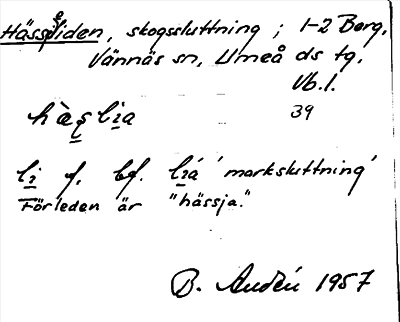 Hässjeliden, skogssluttning ; 1-2 Borg,
Vännäs sn, Umeå ds tg,
Vb. l.
hæ̀s̩li̱a 39
li̱ f. bf. li̱á 'marksluttning'
Förleden är "hässja."
B. 1957